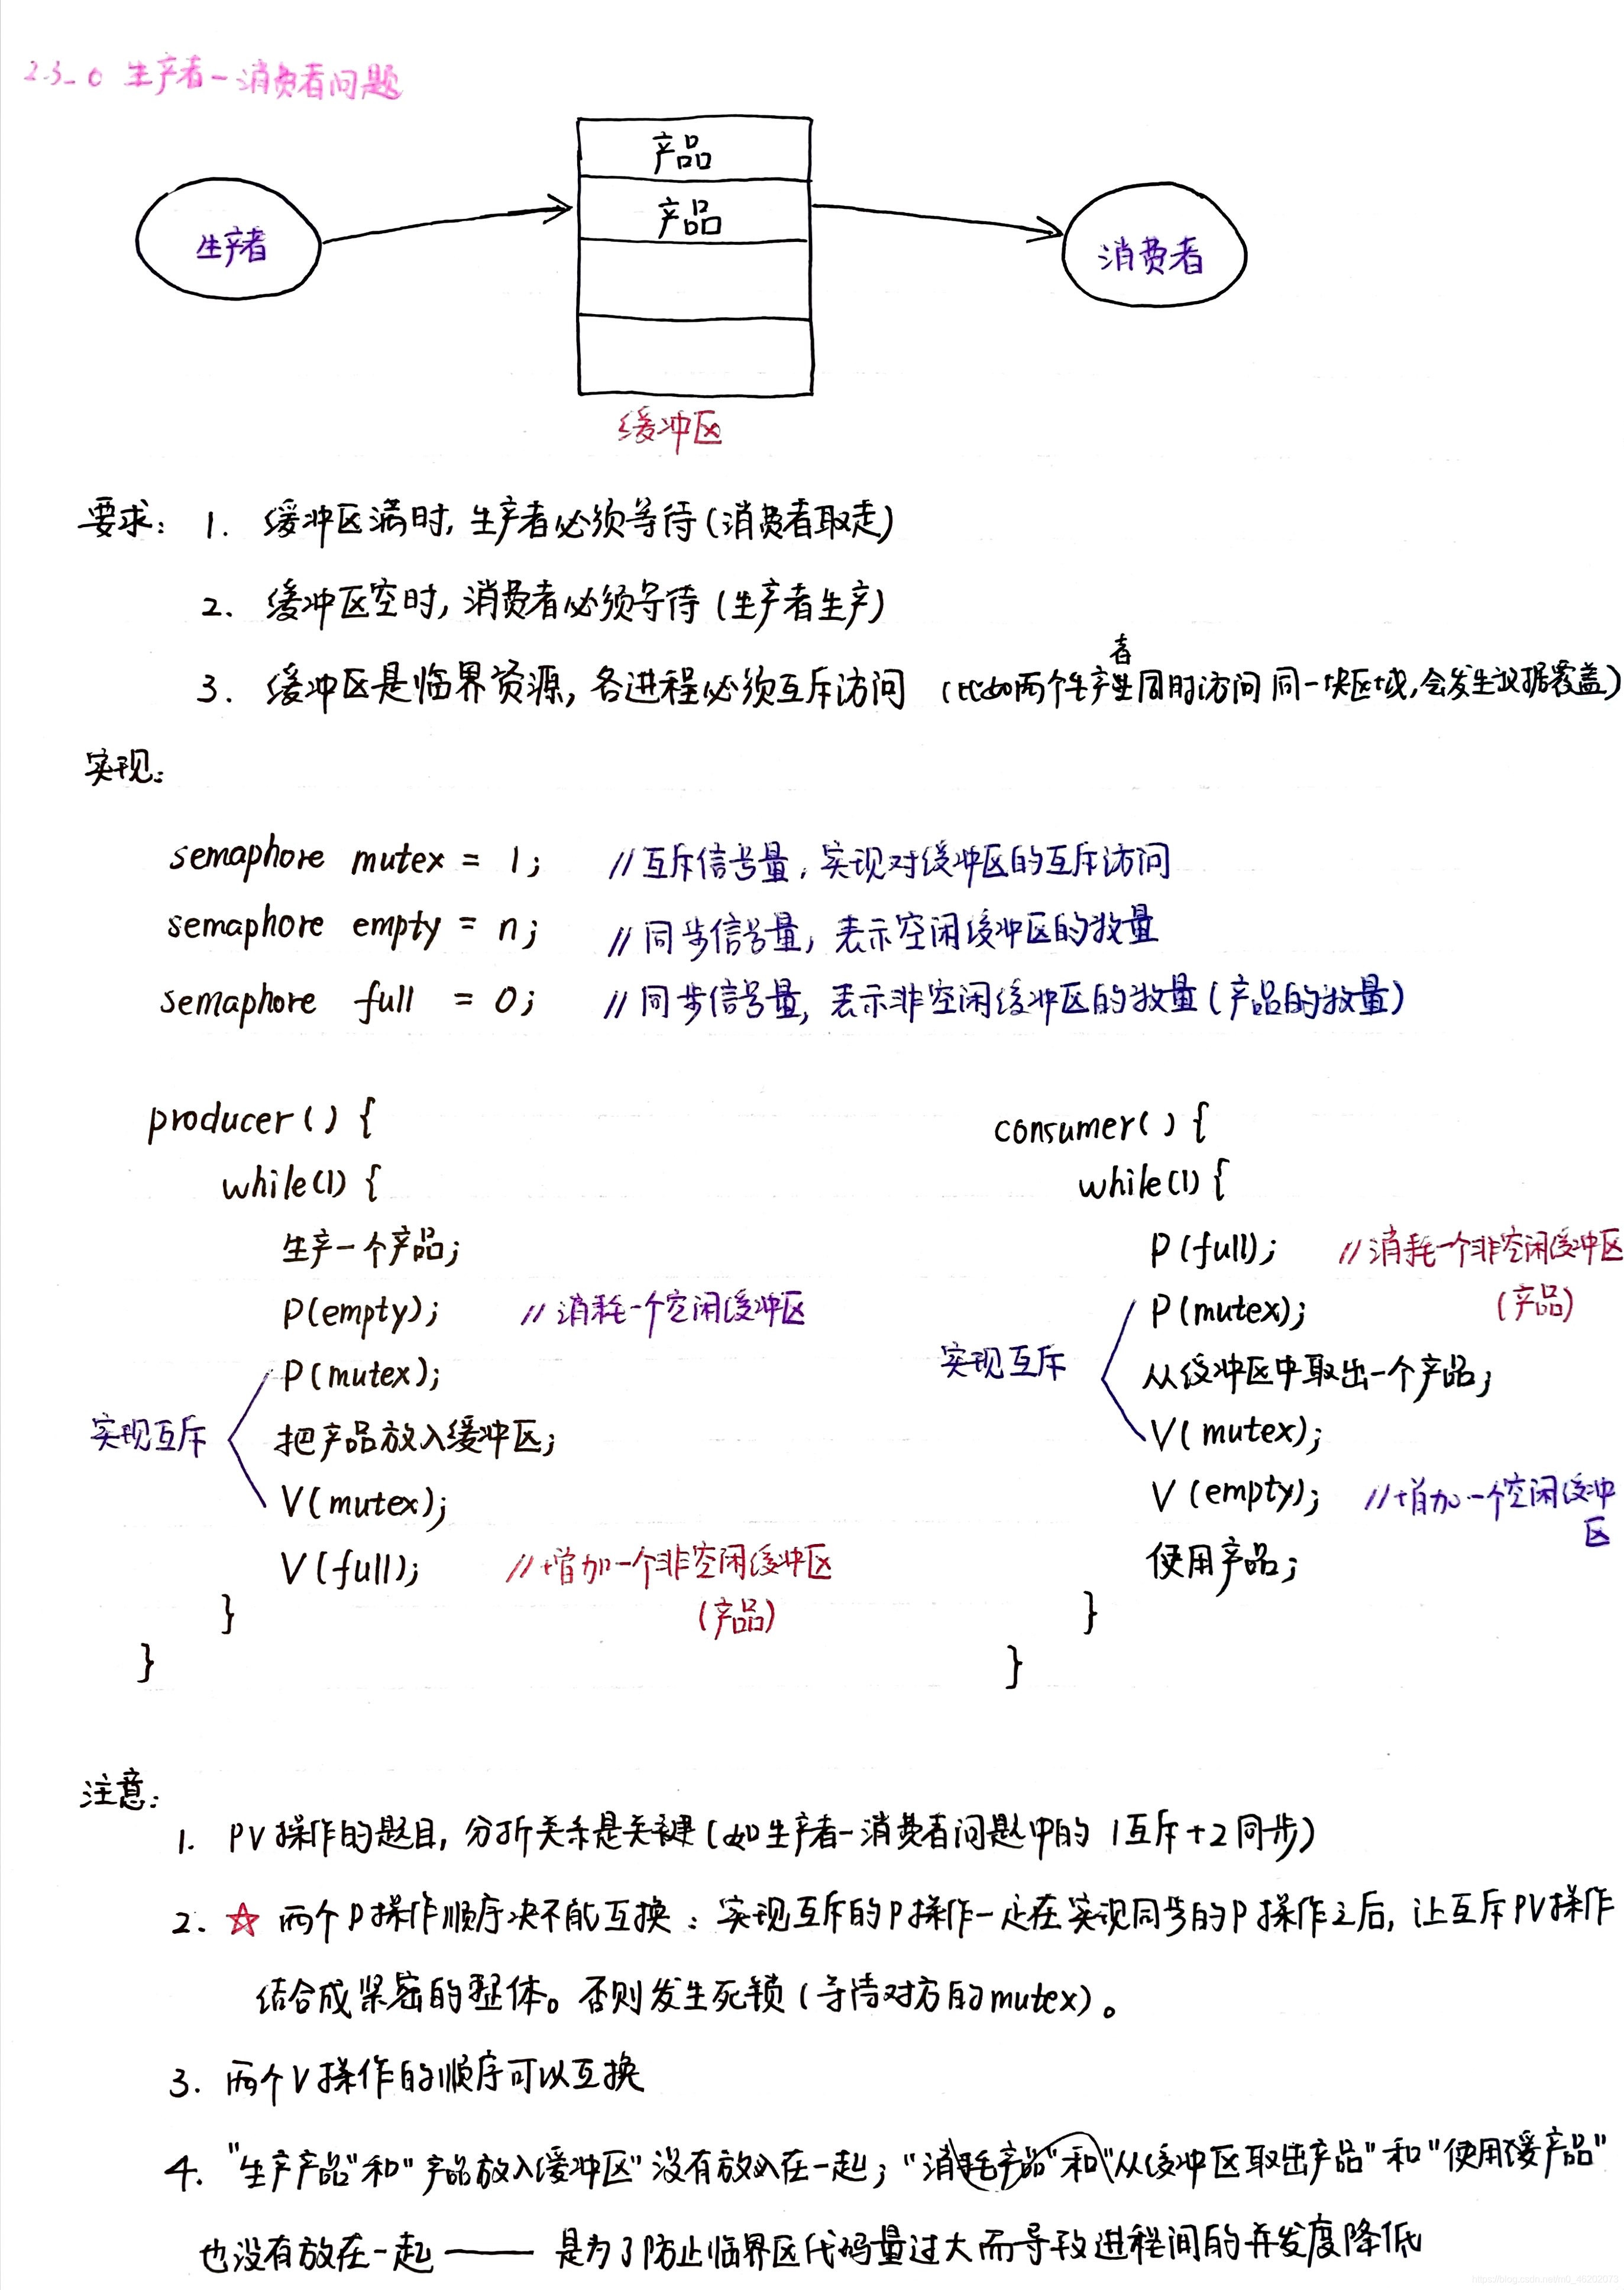 2.3_0 生产者-消费者问题
产品
产品
生产者
消费者
缓冲区
要求: 1. 缓冲区满时, 生产者必须等待(消费者取走)
2. 缓冲区空时, 消费者必须等待 (生产者生产)
者
3. 缓冲区是临界资源, 各进程必须互斥访问 (比如两个生产生同时访问同一块区域, 会发生数据覆盖)
实现:
semaphore mutex = 1; //互斥信号量, 实现对缓冲区的互斥访问
semaphore empty = n; //同步信号量, 表示空闲缓冲区的数量
semaphore full = 0; //同步信号量, 表示非空闲缓冲区的数量(产品的数量)
producer() {
while(1) {
生产一个产品;
P(empty); //消耗一个空闲缓冲区
P(mutex);
实现互斥 把产品放入缓冲区;
V(mutex);
V(full); //增加一个非空闲缓冲区
(产品)
}
}
consumer() {
while(1) {
P(full); //消耗一个非空闲缓冲区
(产品)
P(mutex);
实现互斥 从缓冲区中取出一个产品;
V(mutex);
V(empty); //增加一个空闲缓冲
区
使用产品;
}
}
注意:
1. PV操作的题目, 分析关系是关键(如生产者-消费者问题中的 1互斥+2同步)
2. ☆ 两个P操作顺序决不能互换: 实现互斥的P操作一定在实现同步的P操作之后, 让互斥PV操作
结合成紧密的整体。否则发生死锁(等待对方的mutex)。
3. 两个V操作的顺序可以互换
4. "生产产品"和"产品放入缓冲区"没有放在一起; "消耗产品"和"从缓冲区取出产品"和"使用产品"
也没有放在一起 —— 是为了防止临界区代码量过大而导致进程间的并发度降低